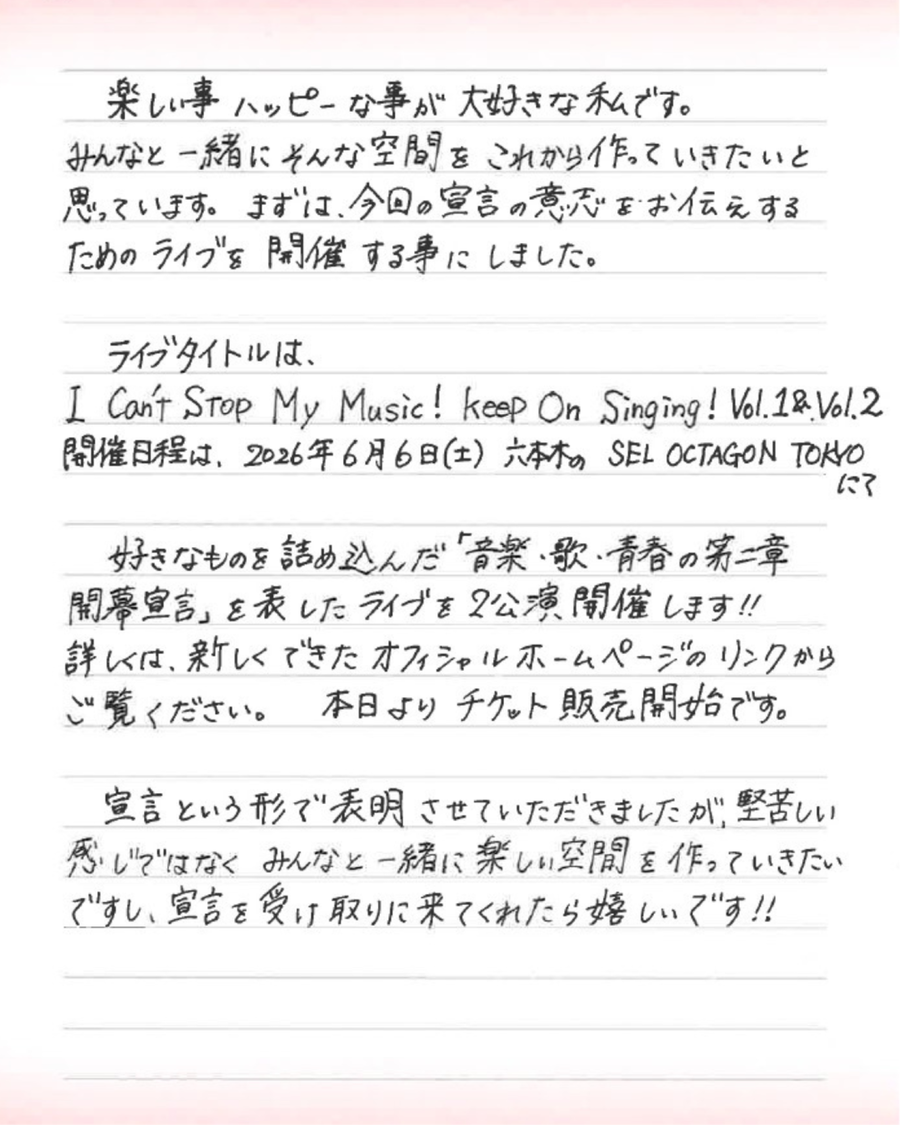 楽しい事 ハッピーな事が 大好きな私です。
みんなと一緒にそんな空間をこれから作っていきたいと
思っています。まずは、今回の宣言の意志をお伝えする
ためのライブを 開催する事にしました。
ライブタイトルは、
I Can't Stop My Music! keep On Singing! Vol.1&Vol.2
開催日程は、2026年6月6日(土) 六本木の SEL OCTAGON TOKYO
にて
好きなものを詰め込んだ「音楽・歌・青春の第二章
開幕宣言」を表したライブを2公演開催します!!
詳しくは、新しくできたオフィシャルホームページのリンクから
ご覧ください。 本日よりチケット販売開始です。
宣言という形で表明させていただきましたが、堅苦しい
感じではなく みんなと一緒に楽しい空間を作っていきたい
ですし、宣言を受け取りに来てくれたら嬉しいです!!